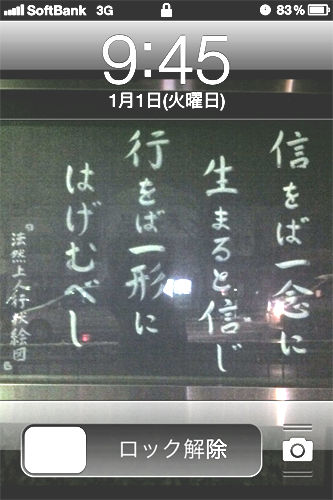 SoftBank 3G 83%
9:45
1月1日(火曜日)
信をば一念に
生まると信じ
行をば一形に
はげむべし
『法然上人行状絵図』
ロック解除